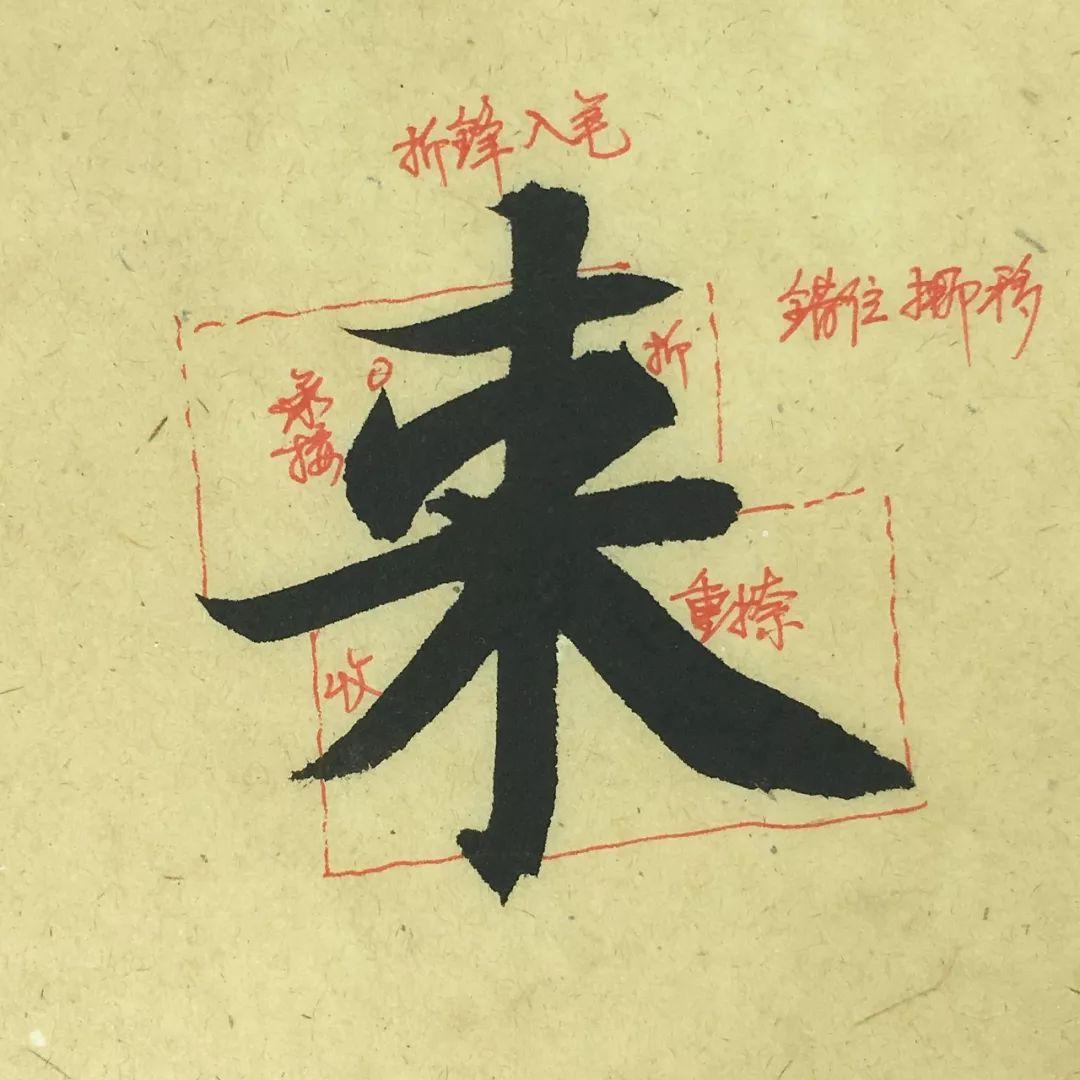 折锋入笔
错位挪移
折
来
重捺
收